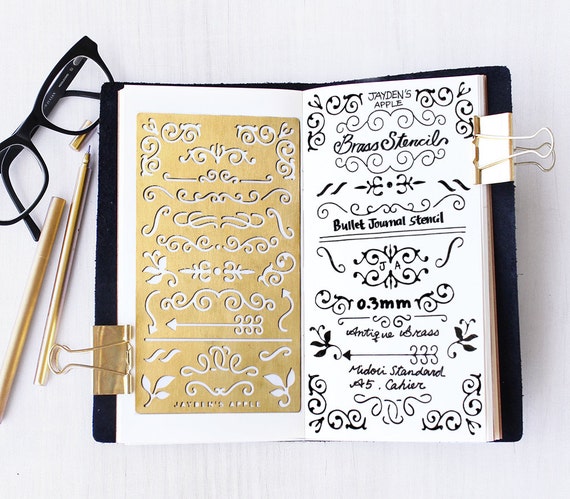 JAYDEN'S APPLE
JAYDEN'S
APPLE
Brass Stencil
Bullet Journal Stencil
J A
0.3mm
Antique Brass
Midori Standard
A5, Cahier